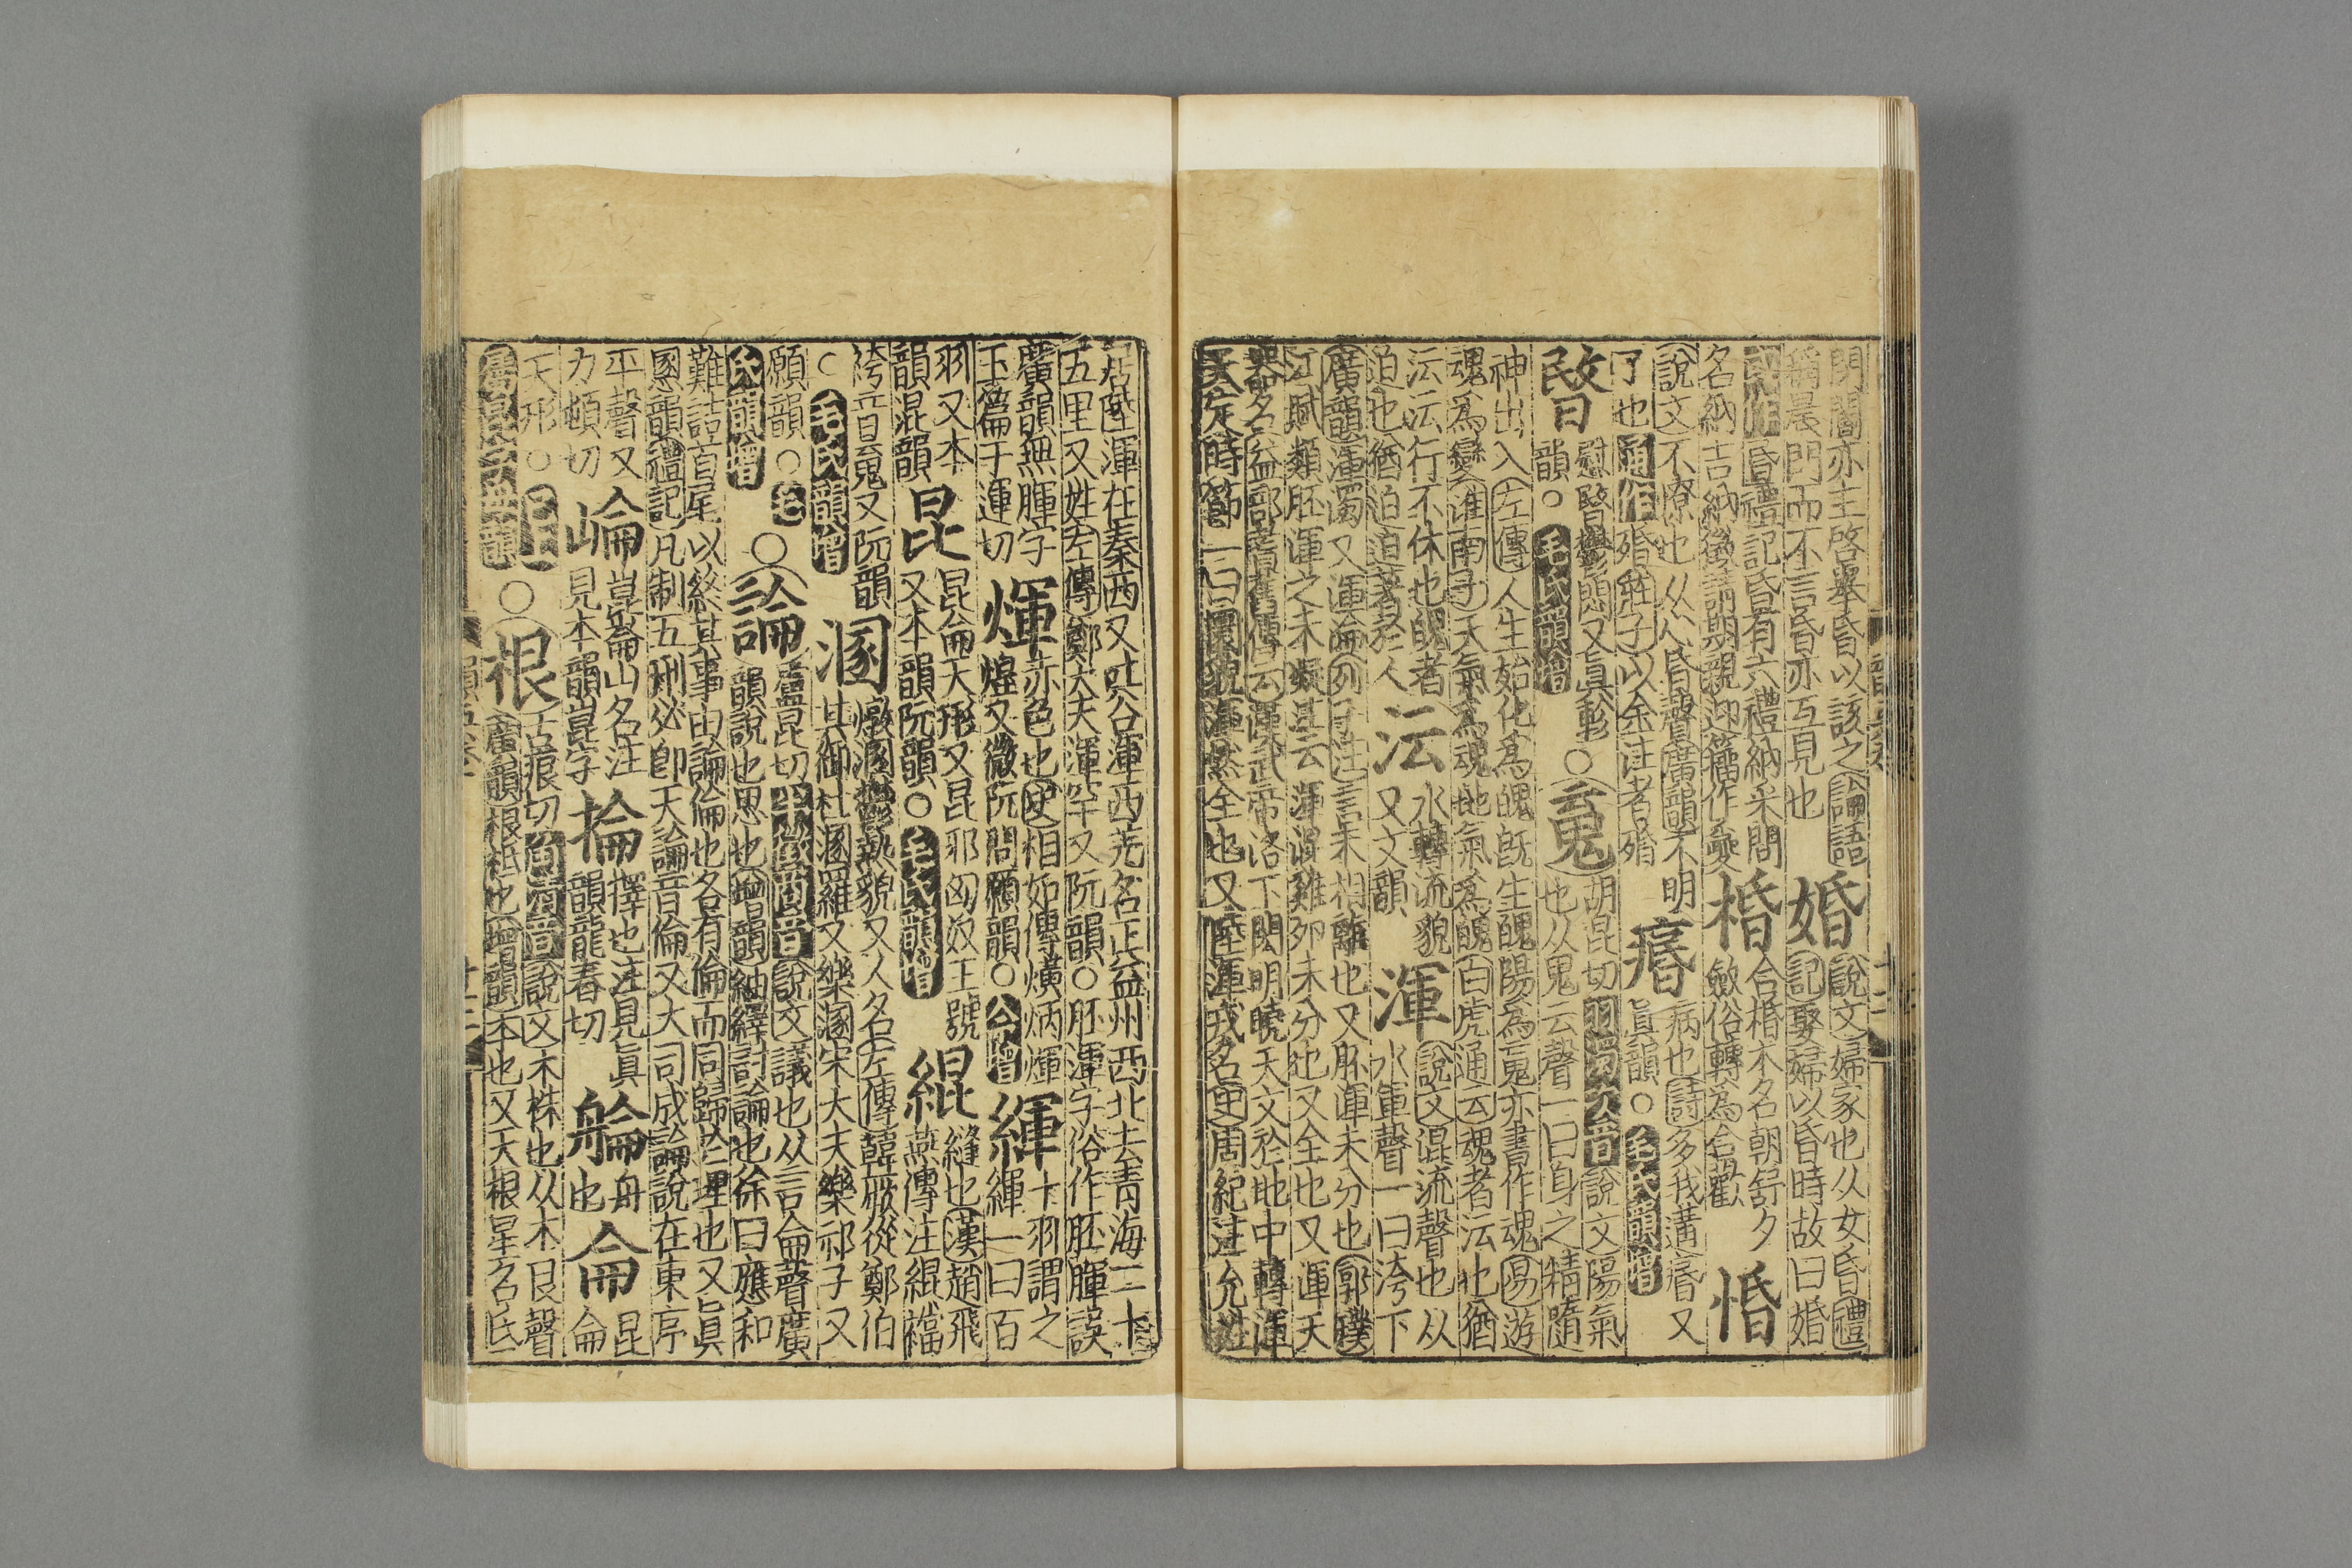 閉閽亦主啓舉昏以該之論語
稱晨門而不言昏亦互見也
婚
說文婦家也从女昏禮
記娶婦以昏時故曰婚
或作昏禮記昏有六禮納采問
名納吉納徵請期親迎籀作
㮯
合㮯木名朝舒夕
斂俗轉為合歡
惛
說文不憭也从心昏聲廣韻不明
了也通作殙莊子以金注者殙
㾽
病也詩多我遘㾽又
真韻○毛氏韻增
暋
慰暋鬱悶又真軫
韻○毛氏韻增
○䰟
胡昆切羽濁次音說文陽氣
也从鬼云聲一曰身之精隨
神出入左傳人生始化為魄旣生魄陽為䰟亦書作魂易游
魂為變淮南子天氣為魂地氣為魄白虎通云魂者沄也猶
沄沄行不休也魄者
迫也猶迫迫著於人
沄
水轉流貌
又文韻
渾
說文混流聲也从
水軍聲一曰洿下
廣韻渾濁又渾淪列子注言未相離也又胚渾未分也郭璞
江賦類胚渾之未凝甚云渾渾雞卵未分也又全也又渾天
器名益部耆舊傳云漢武帝洛下閎明曉天文於地中轉渾
天定時節一曰圜貌渾然全也又陸渾戎名史周紀注允姓
居陸渾在秦西又吐谷渾西羌名正益州西北去青海二十
五里又姓左傳鄭大夫渾罕又阮韻○胚渾字俗作胚腪誤
廣韻無腪字
玉篇于運切
煇
赤色也史相如傳爌炳煇
煌又微阮問願韻○公增
緷
十羽謂之
緷一曰百
羽又本
韻混韻
昆
昆侖天形又昆邪匈奴王號
又本韻阮韻○毛氏韻增
緄
縫也漢趙飛
燕傳注緄襠
袴音䰟又阮韻
○毛氏韻增
溷
燉溷鬱熱貌又人名左傳韓厥從鄭伯
其御杜溷羅又樂溷宋大夫樂祁子又
願韻○毛
氏韻增
○論
盧昆切半徵商音說文議也从言侖聲廣
韻說也思也增韻紬繹討論也徐曰應和
難詰首尾以終其事由論倫也名有倫而同歸於理也又真
慁韻禮記凡制五刑必即天論音倫又大司成論說在東序
平聲又
力頓切
崘
崑崙山名注
見本韻崑字
掄
擇也注見真
韻龍春切
艑
舟
也
侖
昆
侖
天形○
○根
古痕切角清音說文木株也从木艮聲
廣韻根柢也增韻本也又天根星名氐